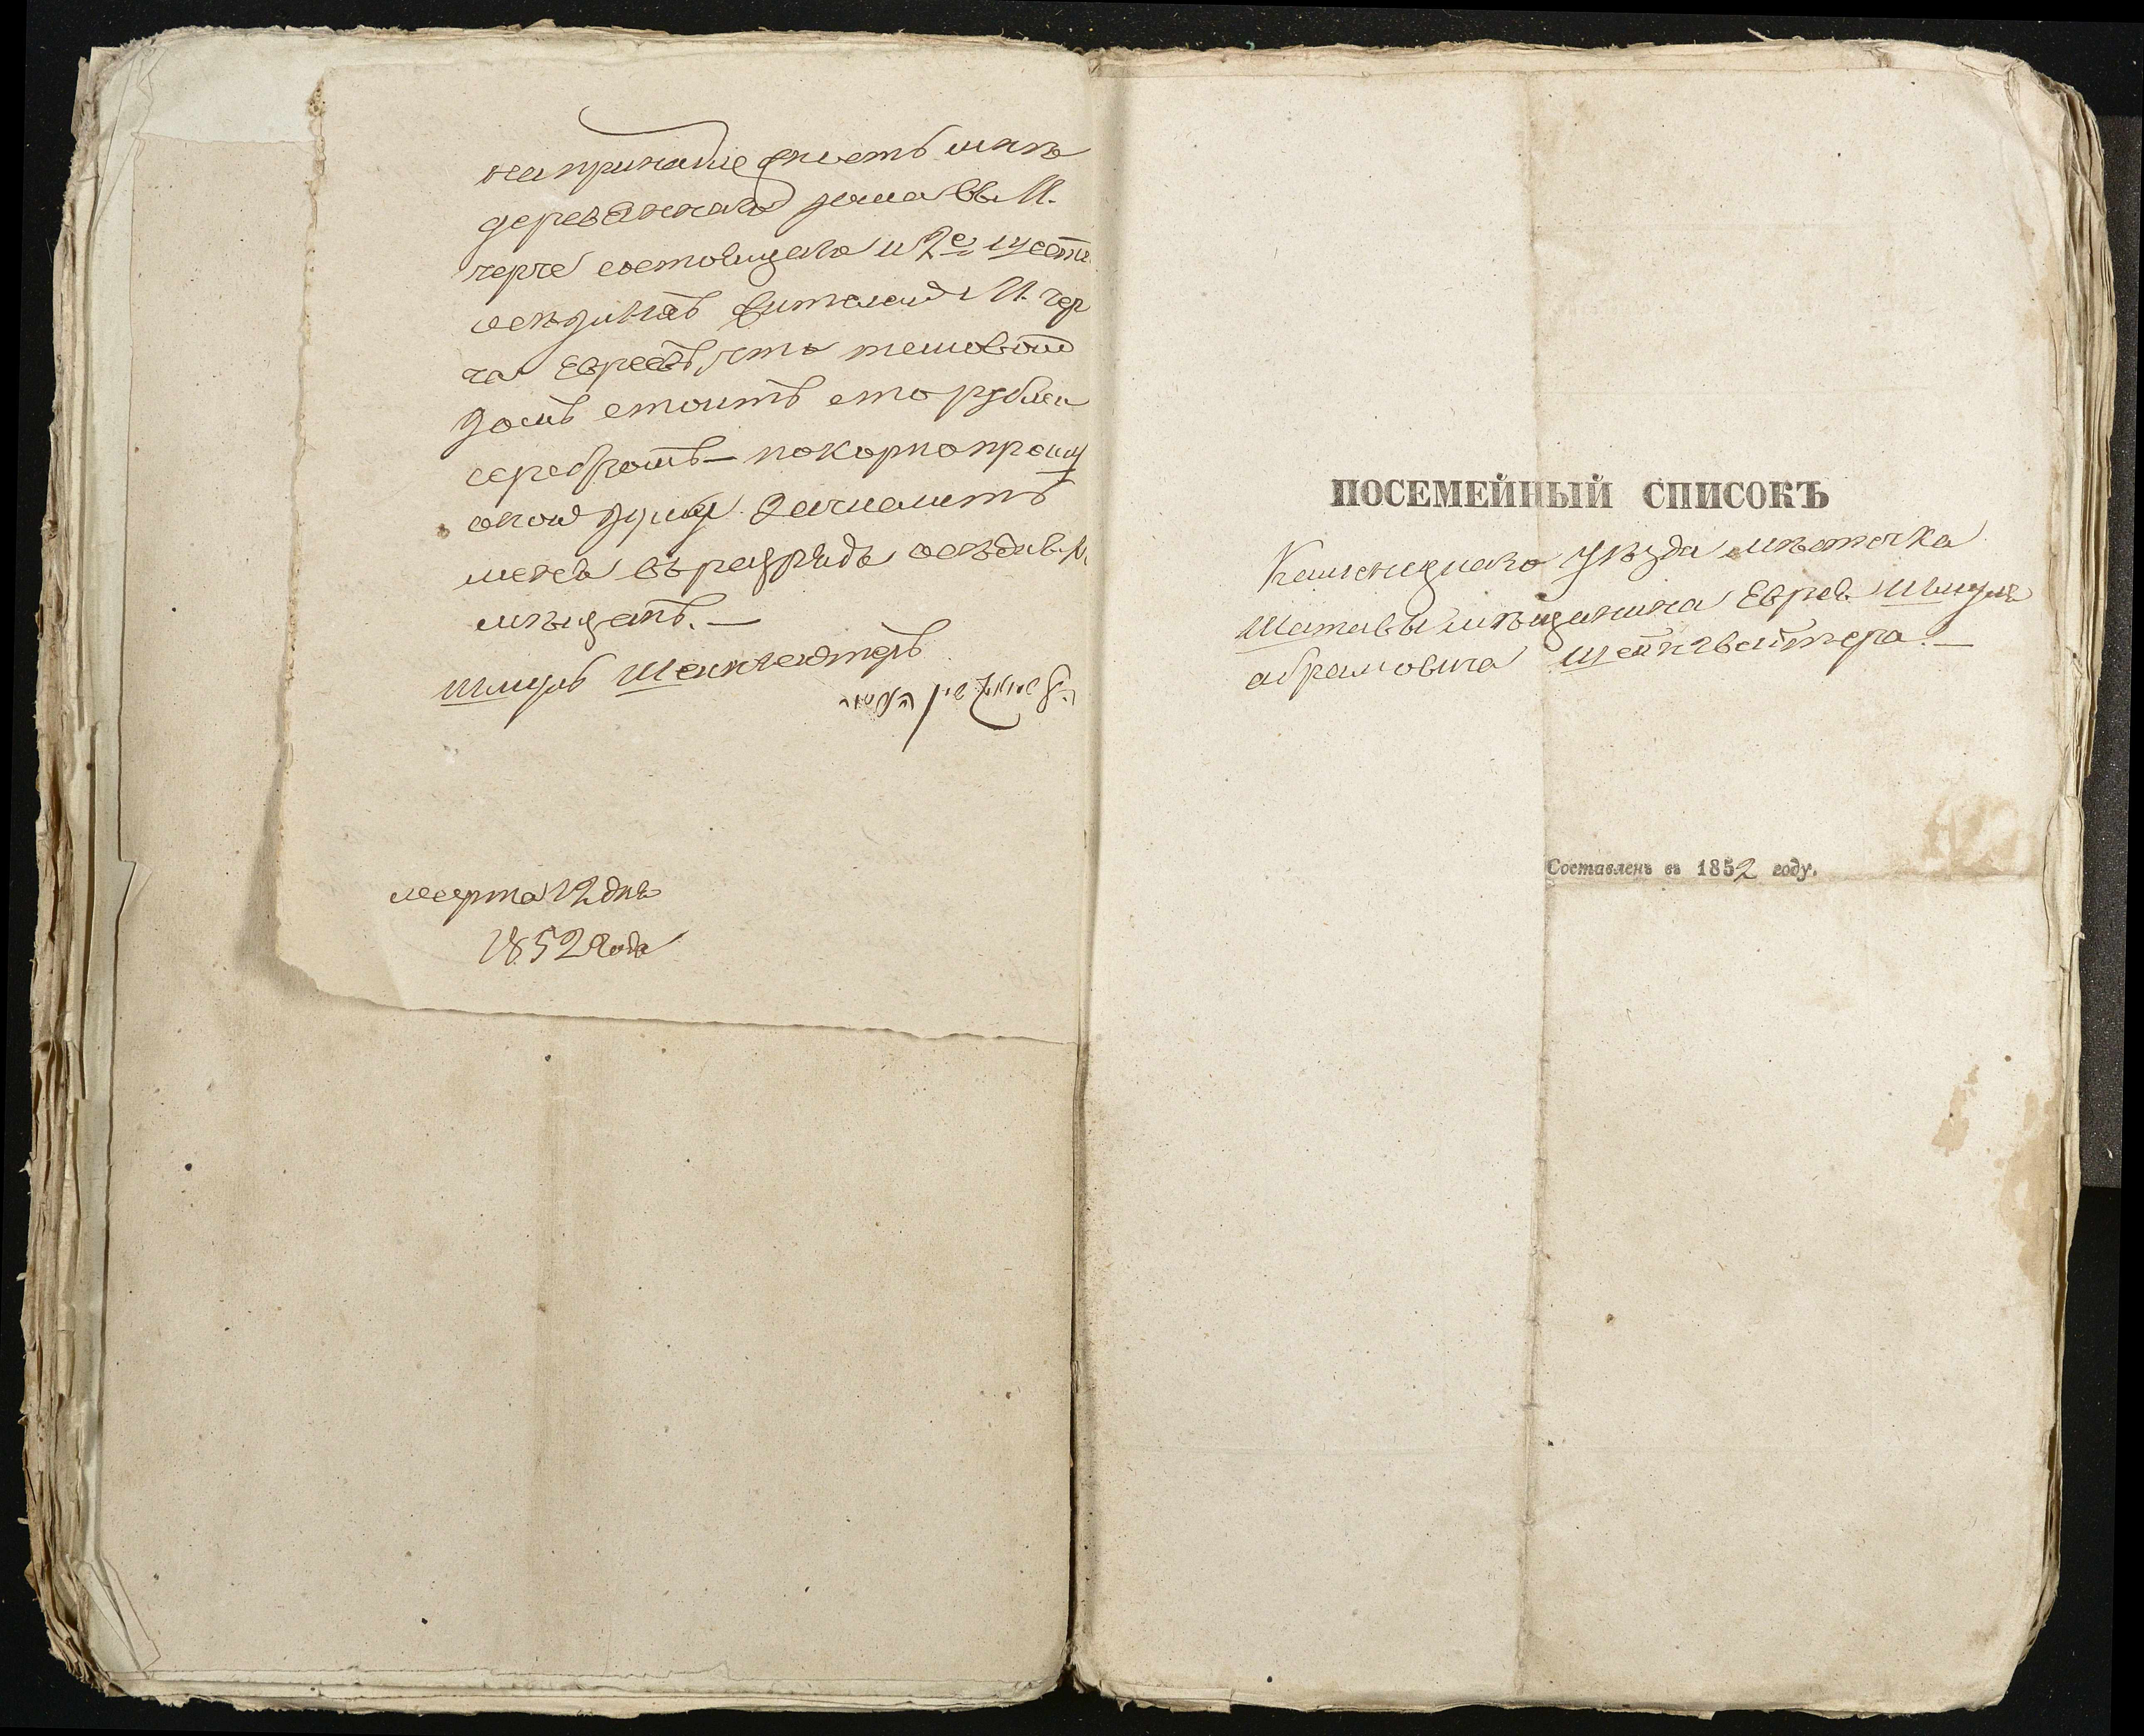 на принадлежность мнѣ
деревяннаго дома въ М.
черче состоящаго и 2е
жителей М. чер
ча Евреевъ, что таковой
домъ стоитъ сто рублей
серебромъ — покорно прошу
оной думу зачислить
меня въ разрядъ осѣдлыхъ
мѣщанъ. —
Шмуль
марта 12 дня
1852 года
ПОСЕМЕЙНЫЙ СПИСОКЪ
Каменецкаго уѣзда мѣстечка
Шатавы мѣщанина Еврея Шмуля
абрамовича Шейнлейтера. —
Составленъ въ 1852 году.